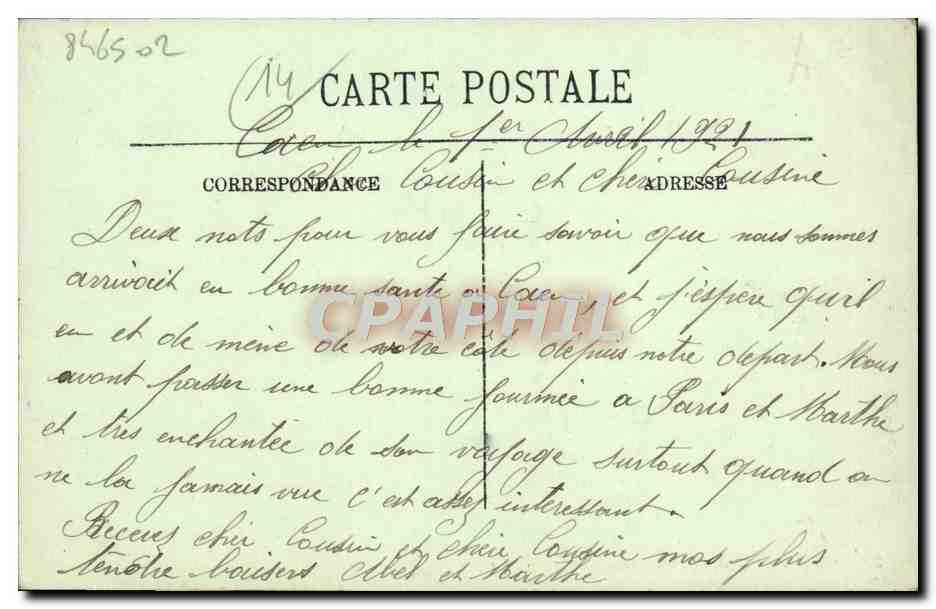 846502
(14)
CARTE POSTALE
Caen le 1er Avril 1921
CORRESPONDANCE
ADRESSE
Cher Cousin et chère Cousine
Deux mots pour vous faire savoir que nous sommes
arrivait en bonne sante a Caen, et j'espere qu'il
en et de mème de votre côté depuis notre depart. Nous
avont passer une bonne journeé a Paris et Marthe
et tres enchantée de son voyage surtout quand on
ne la jamais vue c'est assez interessant.
Receves cher Cousin et chère Cousine mos plus
tendre baisers Abel et Marthe
CPAPHIL